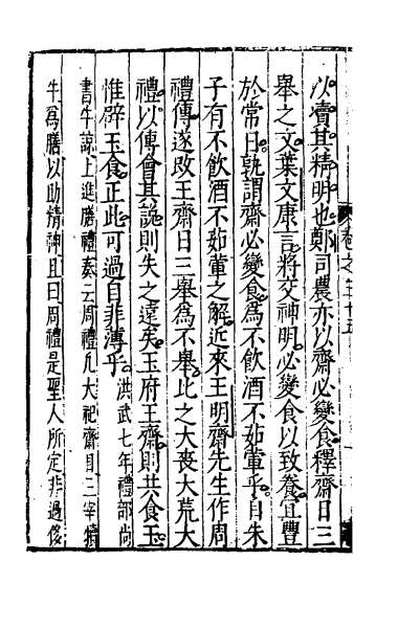 以瀆其精明也鄭司農亦以齋必變食釋齋日三
舉之文葉文康言將交神明必變食以致養宜豐
於常日孰謂齋必變食為不飲酒不茹葷乎自朱
子有不飲酒不茹葷之解近來王明齋先生作周
禮傳遂改王齋日三舉為不舉比之大喪大荒大
禮以傳會其說則失之遠矣玉府王齋則共食玉
惟辟玉食正此可過自菲薄乎洪武七年禮部尚
書牛諒上進膳禮奏云周禮凡大祀齋日三宰犢
牛為膳以助精神且曰周禮是聖人所定非過侈
卷之三十五